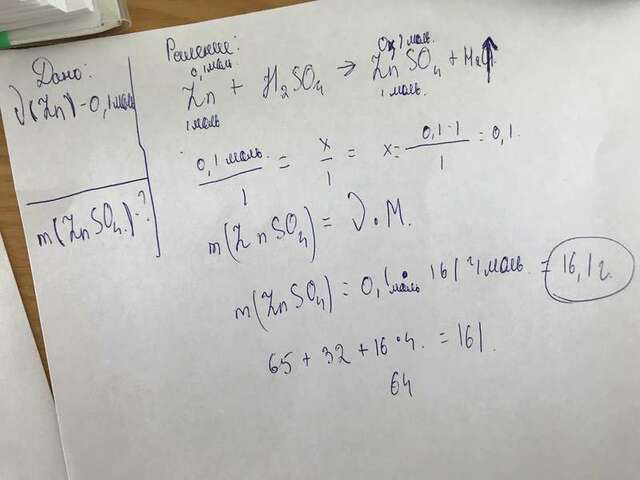 Дано:
ν(Zn) - 0,1 моль
m(ZnSO4) - ?
Решение:
0,1 моль 0,1 моль.
Zn + H2SO4 → ZnSO4 + ↑
1 моль 1 моль.
0,1 моль / 1 = x / 1 = x = 0,1·1 / 1 = 0,1.
m(ZnSO4) = ν · M.
m(ZnSO4) = 0,1 моль · 161 г/моль = 16,1 г.
65 + 32 + 16·4 = 161.
64